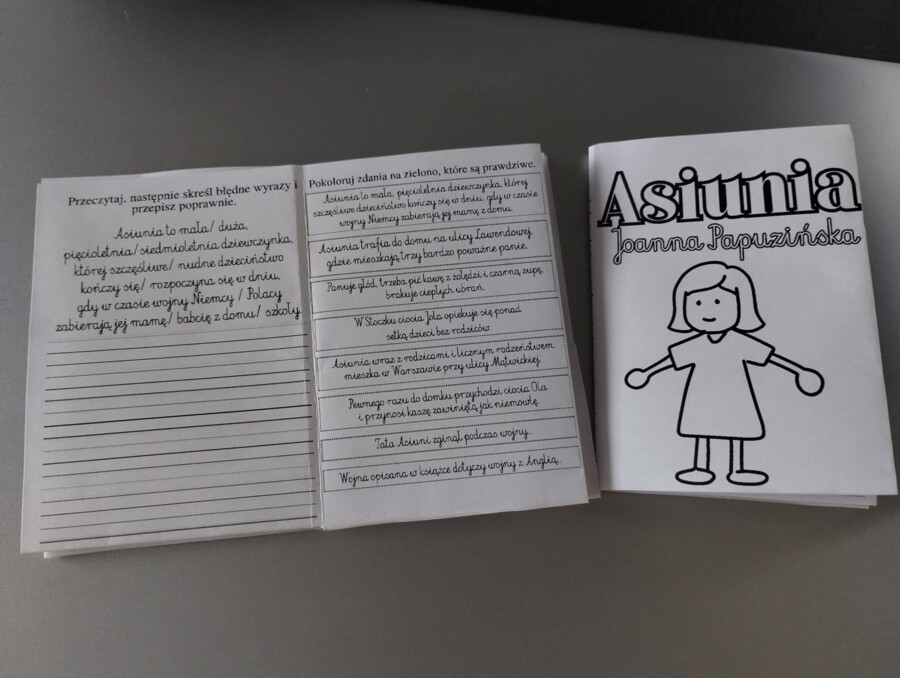 Przeczytaj, następnie skreśl błędne wyrazy i
przepisz poprawnie.
Asiunia to mała/ duża,
pięcioletnia/ siedmioletnia dziewczynka,
której szczęśliwe/ nudne dzieciństwo
kończy się/ rozpoczyna się w dniu,
gdy w czasie wojny Niemcy/ Polacy
zabierają jej mamę/ babcię z domu/ szkoły.
Pokoloruj zdania na zielono, które są prawdziwe.
Asiunia to mała, pięcioletnia dziewczynka, której
szczęśliwe dzieciństwo kończy się w dniu, gdy w czasie
wojny Niemcy zabierają jej mamę z domu.
Asiunia trafia do domu na ulicy Lawendowej,
gdzie mieszkają trzy bardzo poważne panie.
Panuje głód, trzeba pić kawę z żołędzi i czarną zupę,
brakuje ciepłych ubrań.
W Stoczku ciocia Jola opiekuje się ponad
setką dzieci bez rodziców.
Asiunia wraz z rodzicami i licznym rodzeństwem
mieszka w Warszawie przy ulicy Mątwickiej.
Pewnego razu do domku przychodzi ciocia Ola
i przynosi kaszę zawiniętą jak niemowlę.
Tata Asiuni zginął podczas wojny.
Wojna opisana w książce dotyczy wojny z Anglią.
Asiunia
Joanna Papuzińska